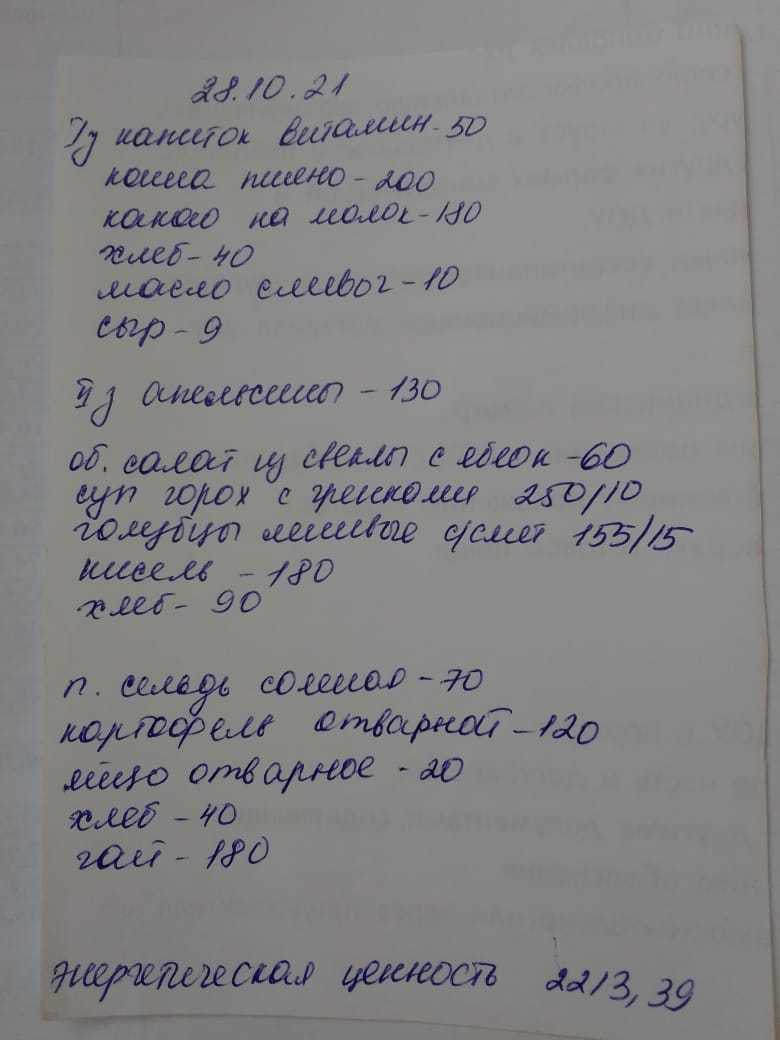 28.10.21
Iз напиток витамин-50
каша пшено-200
какао на молок-180
хлеб-40
масло сливоч-10
сыр-9
IIз апельсины-130
об. салат из свеклы с яблок-60
суп горох с гренками 250/10
голубцы ленивые с/смет 155/15
кисель-180
хлеб-90
п. сельдь соленая-70
картофель отварной-120
яйцо отварное-20
хлеб-40
чай-180
энергетическая ценность 2213,39